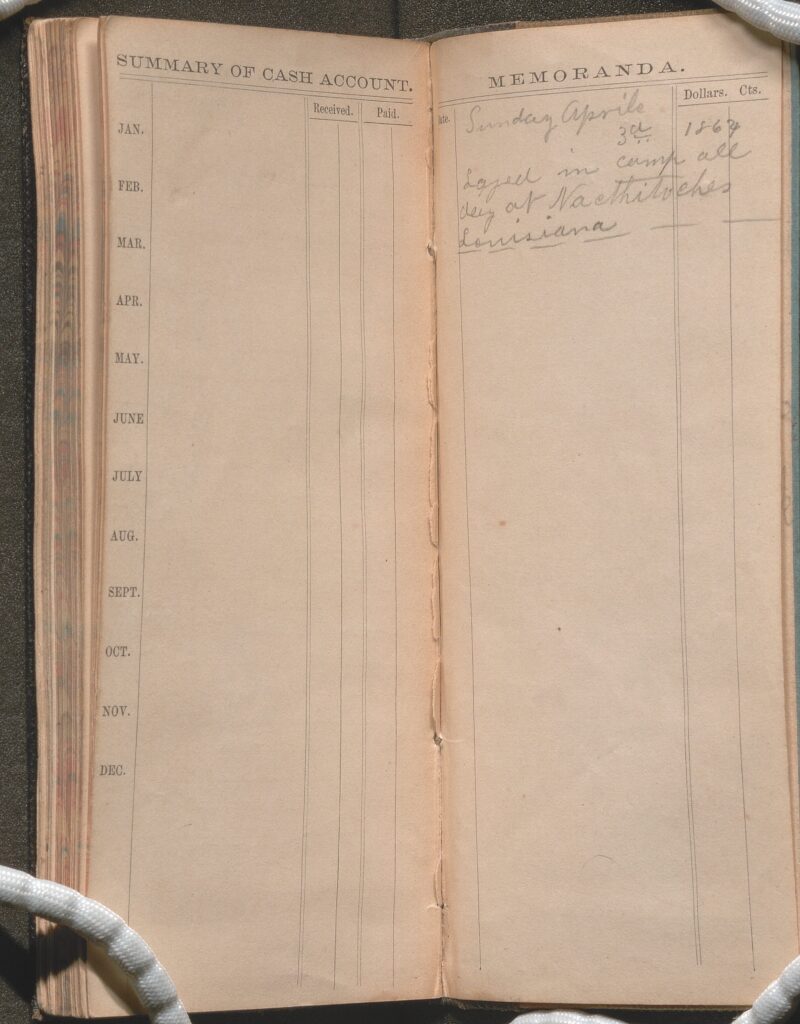 SUMMARY OF CASH ACCOUNT.
Received. Paid.
JAN.
FEB.
MAR.
APR.
MAY.
JUNE
JULY
AUG.
SEPT.
OCT.
NOV.
DEC.
MEMORANDA.
ate. Dollars. Cts.
Sunday Aprile
3d 1864
Layed in camp all
day at Nacthitoches
Louisiana